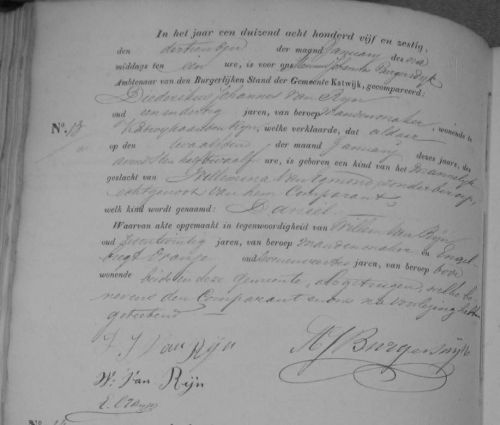 In het jaar een duizend acht honderd vijf en zestig,
den dertienden der maand Januarij des na
middags ten een ure, is voor ons
Ambtenaar van den Burgerlijken Stand der Gemeente Katwijk, gecompareerd:
Diederikus Johannes van Rijn
oud een en dertig jaren, van beroep mandenmaker, wonende te
No. 13 Katwijk aan den Rijn, welke verklaarde, dat aldaar
op den twaalfden der maand Januarij dezes jaars, des
avonds ten half ure, is geboren een kind van het mannelijk
geslacht van Willemina van Egmond, zonder beroep,
echtgenoot van hem Comparant
welk kind wordt genaamd: Daniel.
Waarvan akte opgemaakt in tegenwoordigheid van Willem van Rijn
oud jaren, van beroep mandenmaker en Engel
bregt Oranje oud jaren, van beroep
wonende beiden in deze gemeente, als getuigen, welke be
nevens den Comparant en ons na voorlezing hebben
geteekend
D. J. van Rijn
W: van Rijn
E. Oranje
Burgersdijk
No.